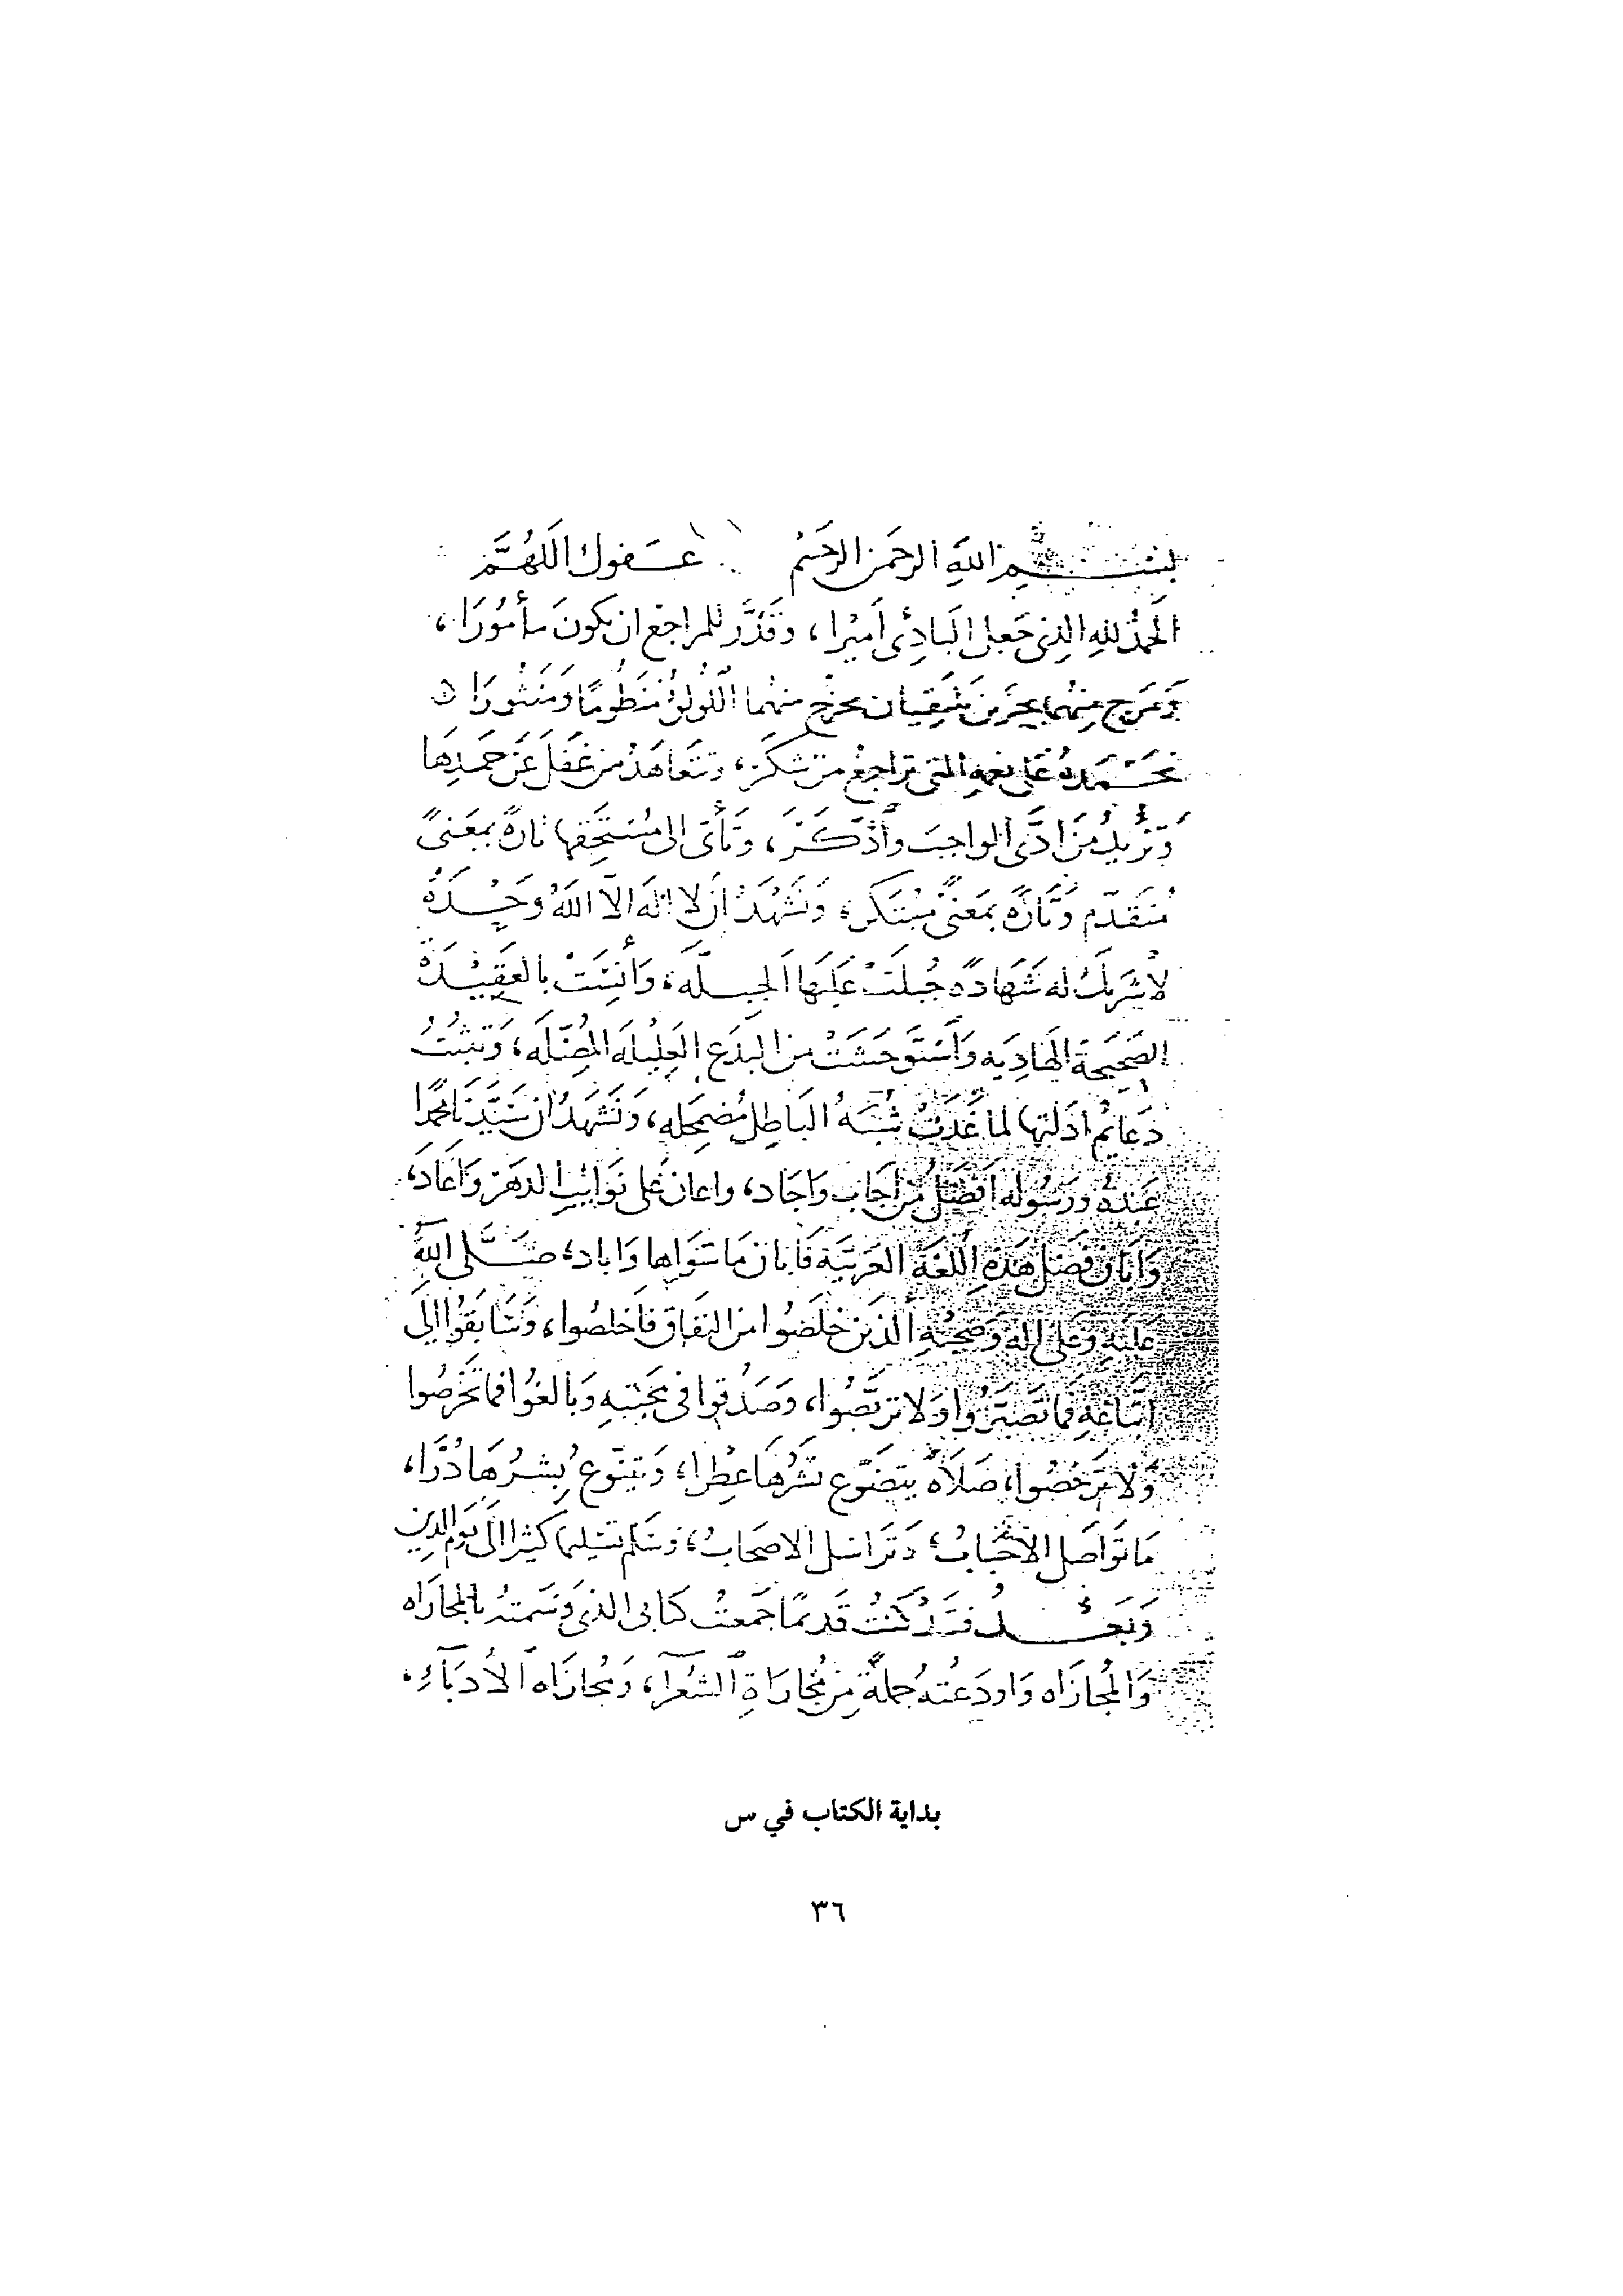 بسم الله الرحمن الرحيم عفوك اللهم
الحمد لله الذي جعل البادئ أميرا، وقدر للمراجع ان يكون مأمورا،
ومرج منهما بحرين يلتقيان يخرج منهما اللؤلؤ منظوما ومنثورا
نحمده على نعمه التي تراجع من شكر، وتتعاهد من غفل عن حمدها
وتزيد من ادى الواجب واذكر، وتأتى الى مستحقها تارة بمعنى
متقدم وتارة بمعنى مبتكر، ونشهد ان لا اله الا الله وحده
لا شريك له شهادة جبلت عليها الجبلة، وأنست بالعقيدة
الصحيحة الهاديه واستوحشت من البدع العليله المضله، وتثبت
دعائم ادلتها لما غدت شبه الباطل مضمحله، ونشهد ان سيدنا محمدا
عبده ورسوله افضل من اجاب واجاد، واعان على نوائب الدهر واعاد،
وابان فضل هذه اللغة العربية فابان ما سواها واباد، صلى الله
عليه وعلى اله وصحبه الذين خلصوا من النفاق فاخلصوا، وتسابقوا الى
اتباعه فما تصبروا ولا تربصوا، وصدقوا في محبته وبالغوا فما تخرصوا
ولا ترخصوا، صلاة يتضوع نشرها عطرا، ويتنوع بشرها دررا،
ما تواصل الاحباب، وتراسل الاصحاب، وسلم تسليما كثيرا الى يوم الدين
وبعد فقد كنت قديما جمعت كتابى الذي وسمته بالمجاراه
والمجازاه واودعته جملة من مجاراة الشعراء، ومجازاه الأدباء،
بداية الكتاب في س
٣٦